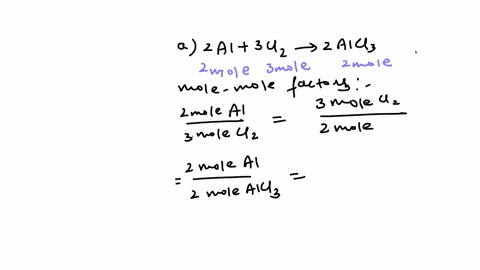 a) 2Al + 3Cl2 → 2AlCl3
2mole 3mole 2mole
mole-mole factors:-
2mole Al / 3 mole Cl2 = 3 mole Cl2 / 2 mole
= 2 mole Al / 2 mole AlCl3 =